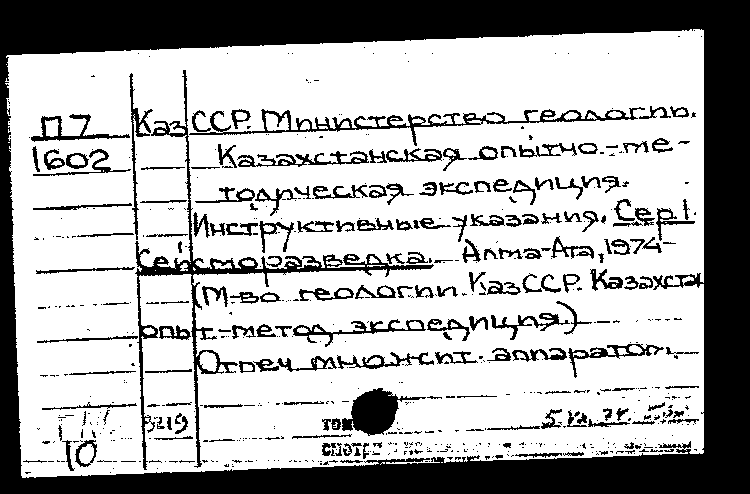 П7 КазССР. Министерство геологии.
1602 Казахстанская опытно-ме-
тодическая экспедиция.
Инструктивные указания. Сер. 1.
Сейсморазведка. Алма-Ата, 1974-
(М-во геологии КазССР. Казахстан
опыт.-метод. экспедиция.)
Отпеч. множит. аппаратом.
3219
10